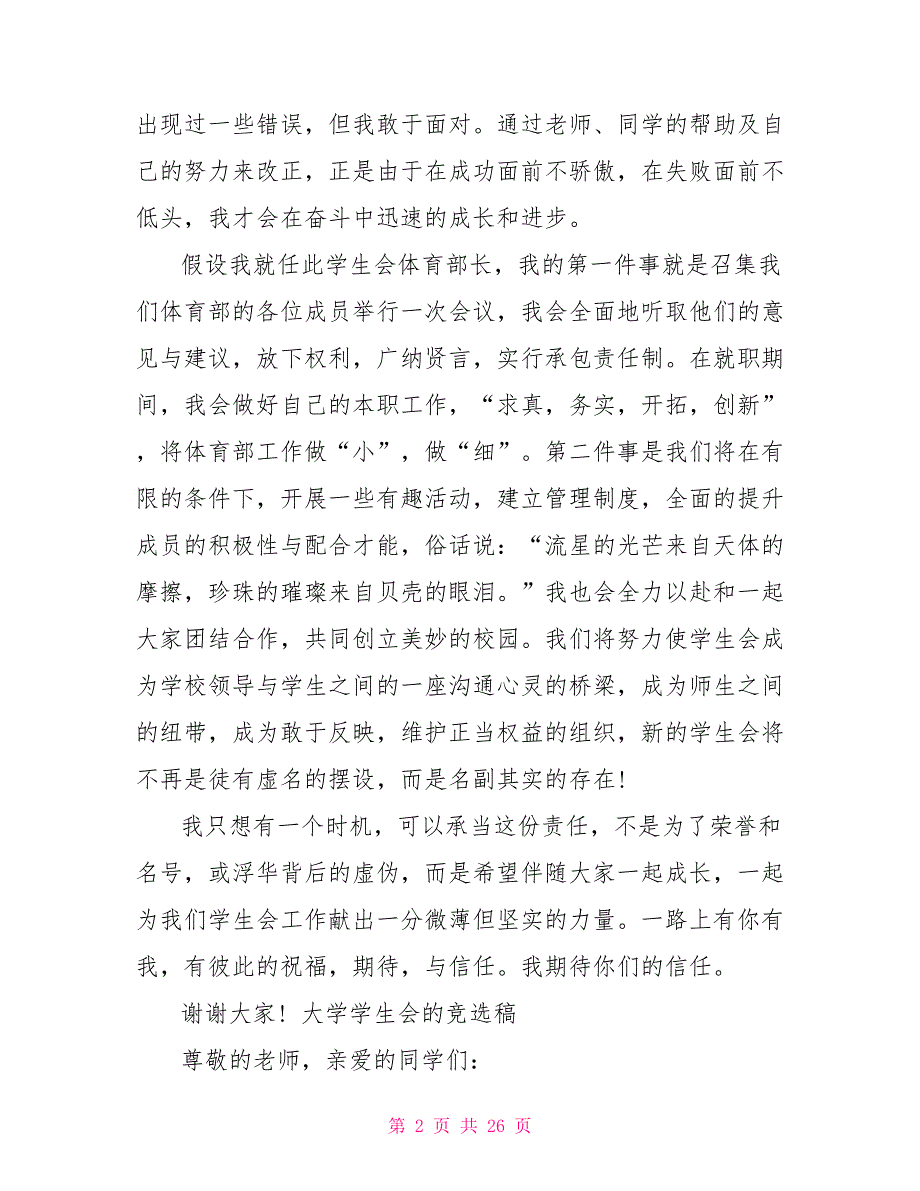 出现过一些错误，但我敢于面对。通过老师、同学的帮助及自
己的努力来改正，正是由于在成功面前不骄傲，在失败面前不
低头，我才会在奋斗中迅速的成长和进步。
假设我就任此学生会体育部长，我的第一件事就是召集我
们体育部的各位成员举行一次会议，我会全面地听取他们的意
见与建议，放下权利，广纳贤言，实行承包责任制。在就职期
间，我会做好自己的本职工作，“求真，务实，开拓，创新”
，将体育部工作做“小”，做“细”。第二件事是我们将在有
限的条件下，开展一些有趣活动，建立管理制度，全面的提升
成员的积极性与配合才能，俗话说：“流星的光芒来自天体的
摩擦，珍珠的璀璨来自贝壳的眼泪。”我也会全力以赴和一起
大家团结合作，共同创立美妙的校园。我们将努力使学生会成
为学校领导与学生之间的一座沟通心灵的桥梁，成为师生之间
的纽带，成为敢于反映，维护正当权益的组织，新的学生会将
不再是徒有虚名的摆设，而是名副其实的存在！
我只想有一个时机，可以承当这份责任，不是为了荣誉和
名号，或浮华背后的虚伪，而是希望伴随大家一起成长，一起
为我们学生会工作献出一分微薄但坚实的力量。一路上有你有
我，有彼此的祝福，期待，与信任。我期待你们的信任。
谢谢大家！大学学生会的竞选稿
尊敬的老师，亲爱的同学们：
第 2 页 共 26 页